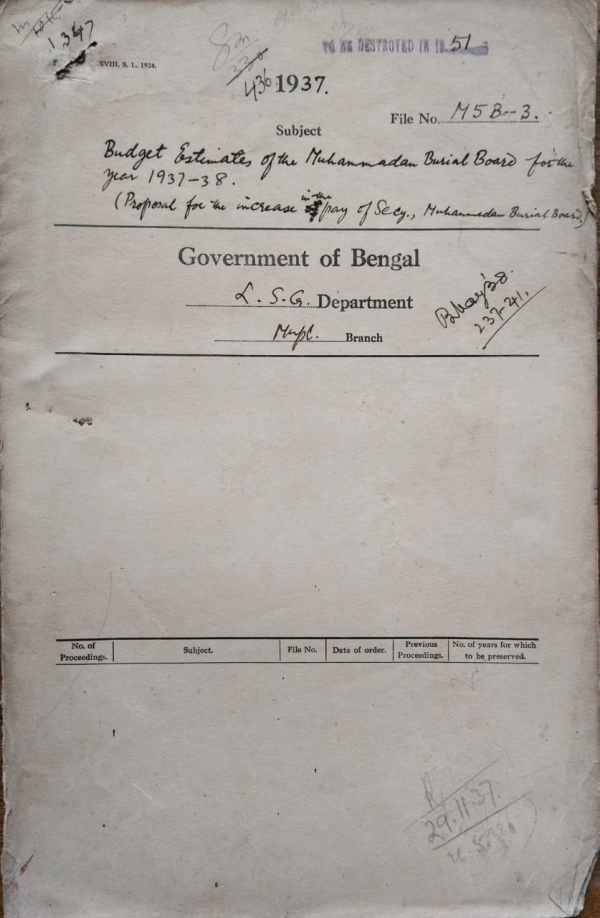 1347
TO BE DESTROYED IN 19 51
XVIII, S. L., 1924.
436
1937.
File No. M5B-3.
Subject
Budget Estimates of the Muhammadan Burial Board for the
year 1937-38.
(Proposal for the increase in the pay of Secy., Muhammadan Burial Board.)
Government of Bengal
L. S. G. Department
Branch
B May '38.
237-41.
No. of Proceedings.
Subject.
File No.
Date of order.
Previous Proceedings.
No. of years for which to be preserved.
29.11.37.